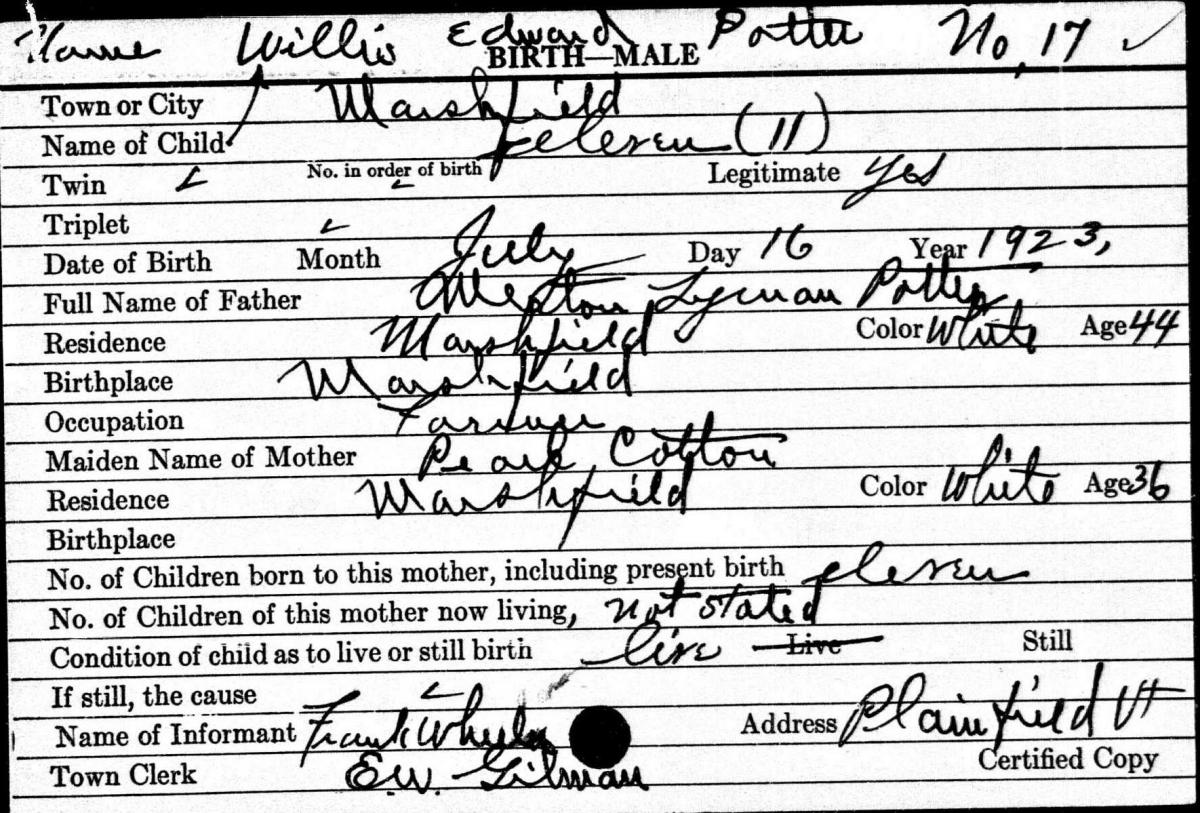 Name Willis Edward Potter No, 17 ✓
BIRTH—MALE
Town or City Marshfield
Name of Child
Twin ✓ No. in order of birth eleven (11) Legitimate yes
Triplet ✓
Date of Birth Month July Day 16 Year 1923,
Full Name of Father Lyman Potter
Residence Marshfield Color White Age 44
Birthplace Marshfield
Occupation Farmer
Maiden Name of Mother Pearl Cotton
Residence Marshfield Color White Age 36
Birthplace
No. of Children born to this mother, including present birth eleven
No. of Children of this mother now living, not stated
Condition of child as to live or still birth live Live Still
If still, the cause ✓
Name of Informant Frank Wheeler Address Plainfield Vt
Certified Copy
Town Clerk E.W. Gilman